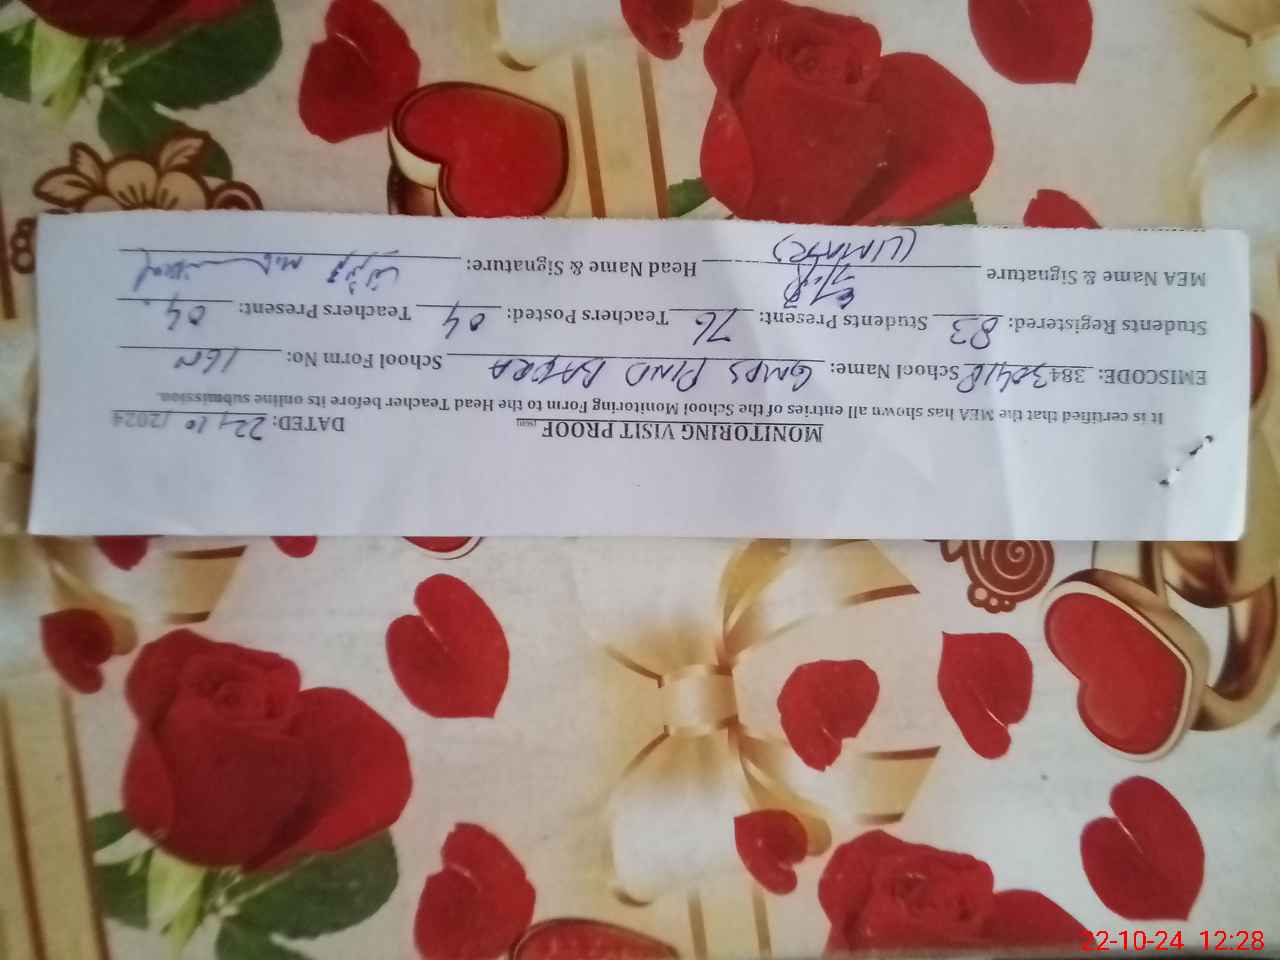 MONITORING VISIT PROOF
DATED: 22/10/2024
It is certified that the MEA has shown all entries of the School Monitoring Form to the Head Teacher before its online submission.
EMISCODE: 38430418 School Name: GMPS PIND School Form No: 160
Students Registered: 83 Students Present: 76 Teachers Posted: 04 Teachers Present: 04
MEA Name & Signature (UMAR) Head Name & Signature:
22-10-24 12:28